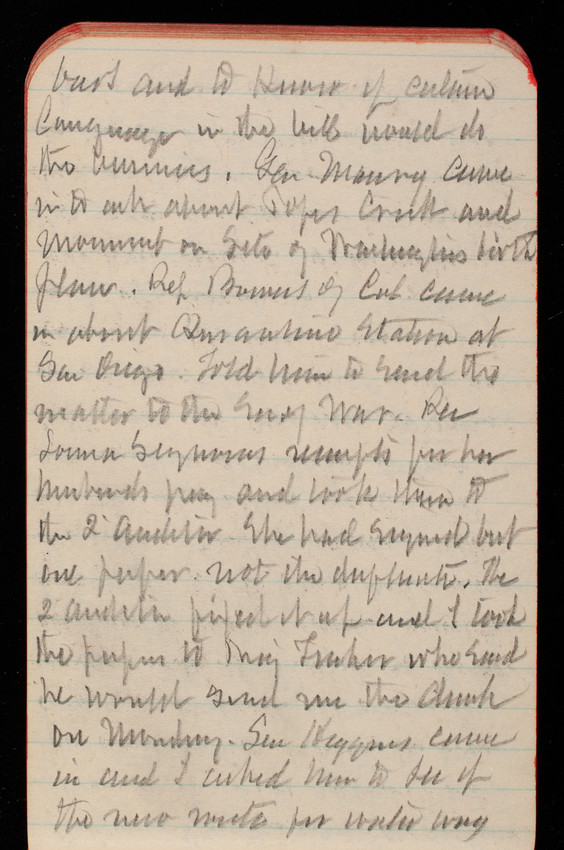 and to know if certain
language in the bill would do
the business. Gen Maury came
in to ask about Popes Creek and
Monument on Site of Washingtons birth
place. Rep Bowers of Cal came
in about Quarantine Station at
San Diego. Told him to send the
matter to the Secy War. Rec
Seymours receipts for her
husbands pay and took them to
the 2 Auditor. She had signed but
one paper not the duplicate. The
2 auditor fixed it up and I took
the papers to Maj who said
he would send me the check
on Monday. Sen Higgins came
in and I asked him to see if
the new route for water way